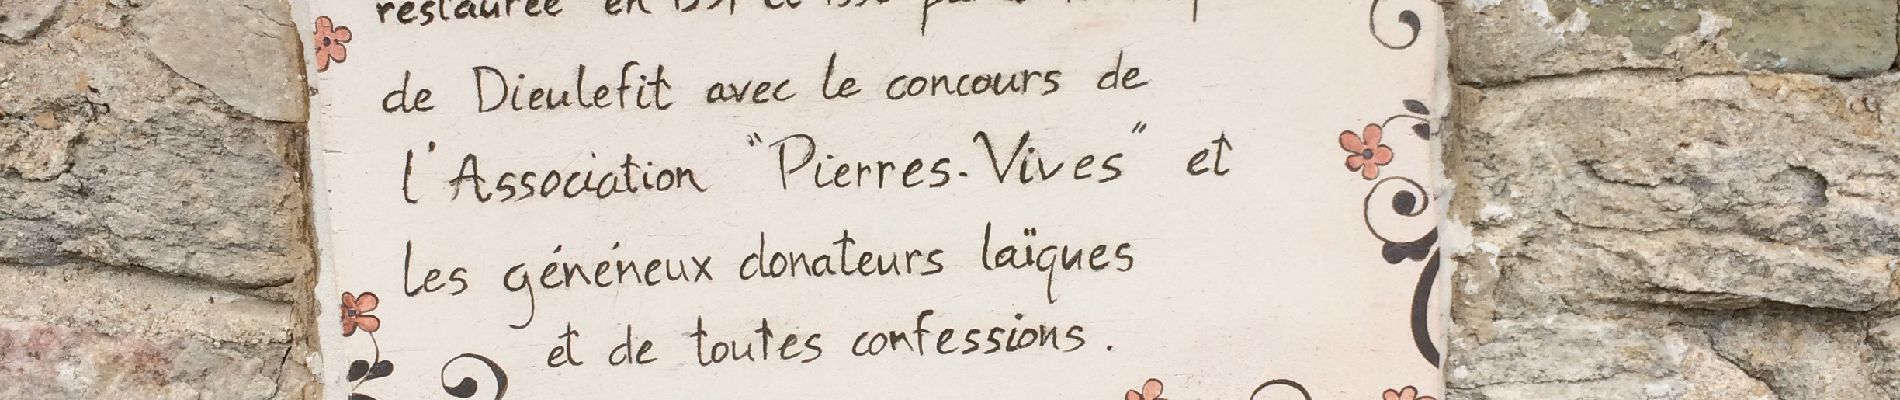 restaurée en
de Dieulefit avec le concours de
l'Association "Pierres-Vives" et
les généneux donateurs laïques
et de toutes confessions.